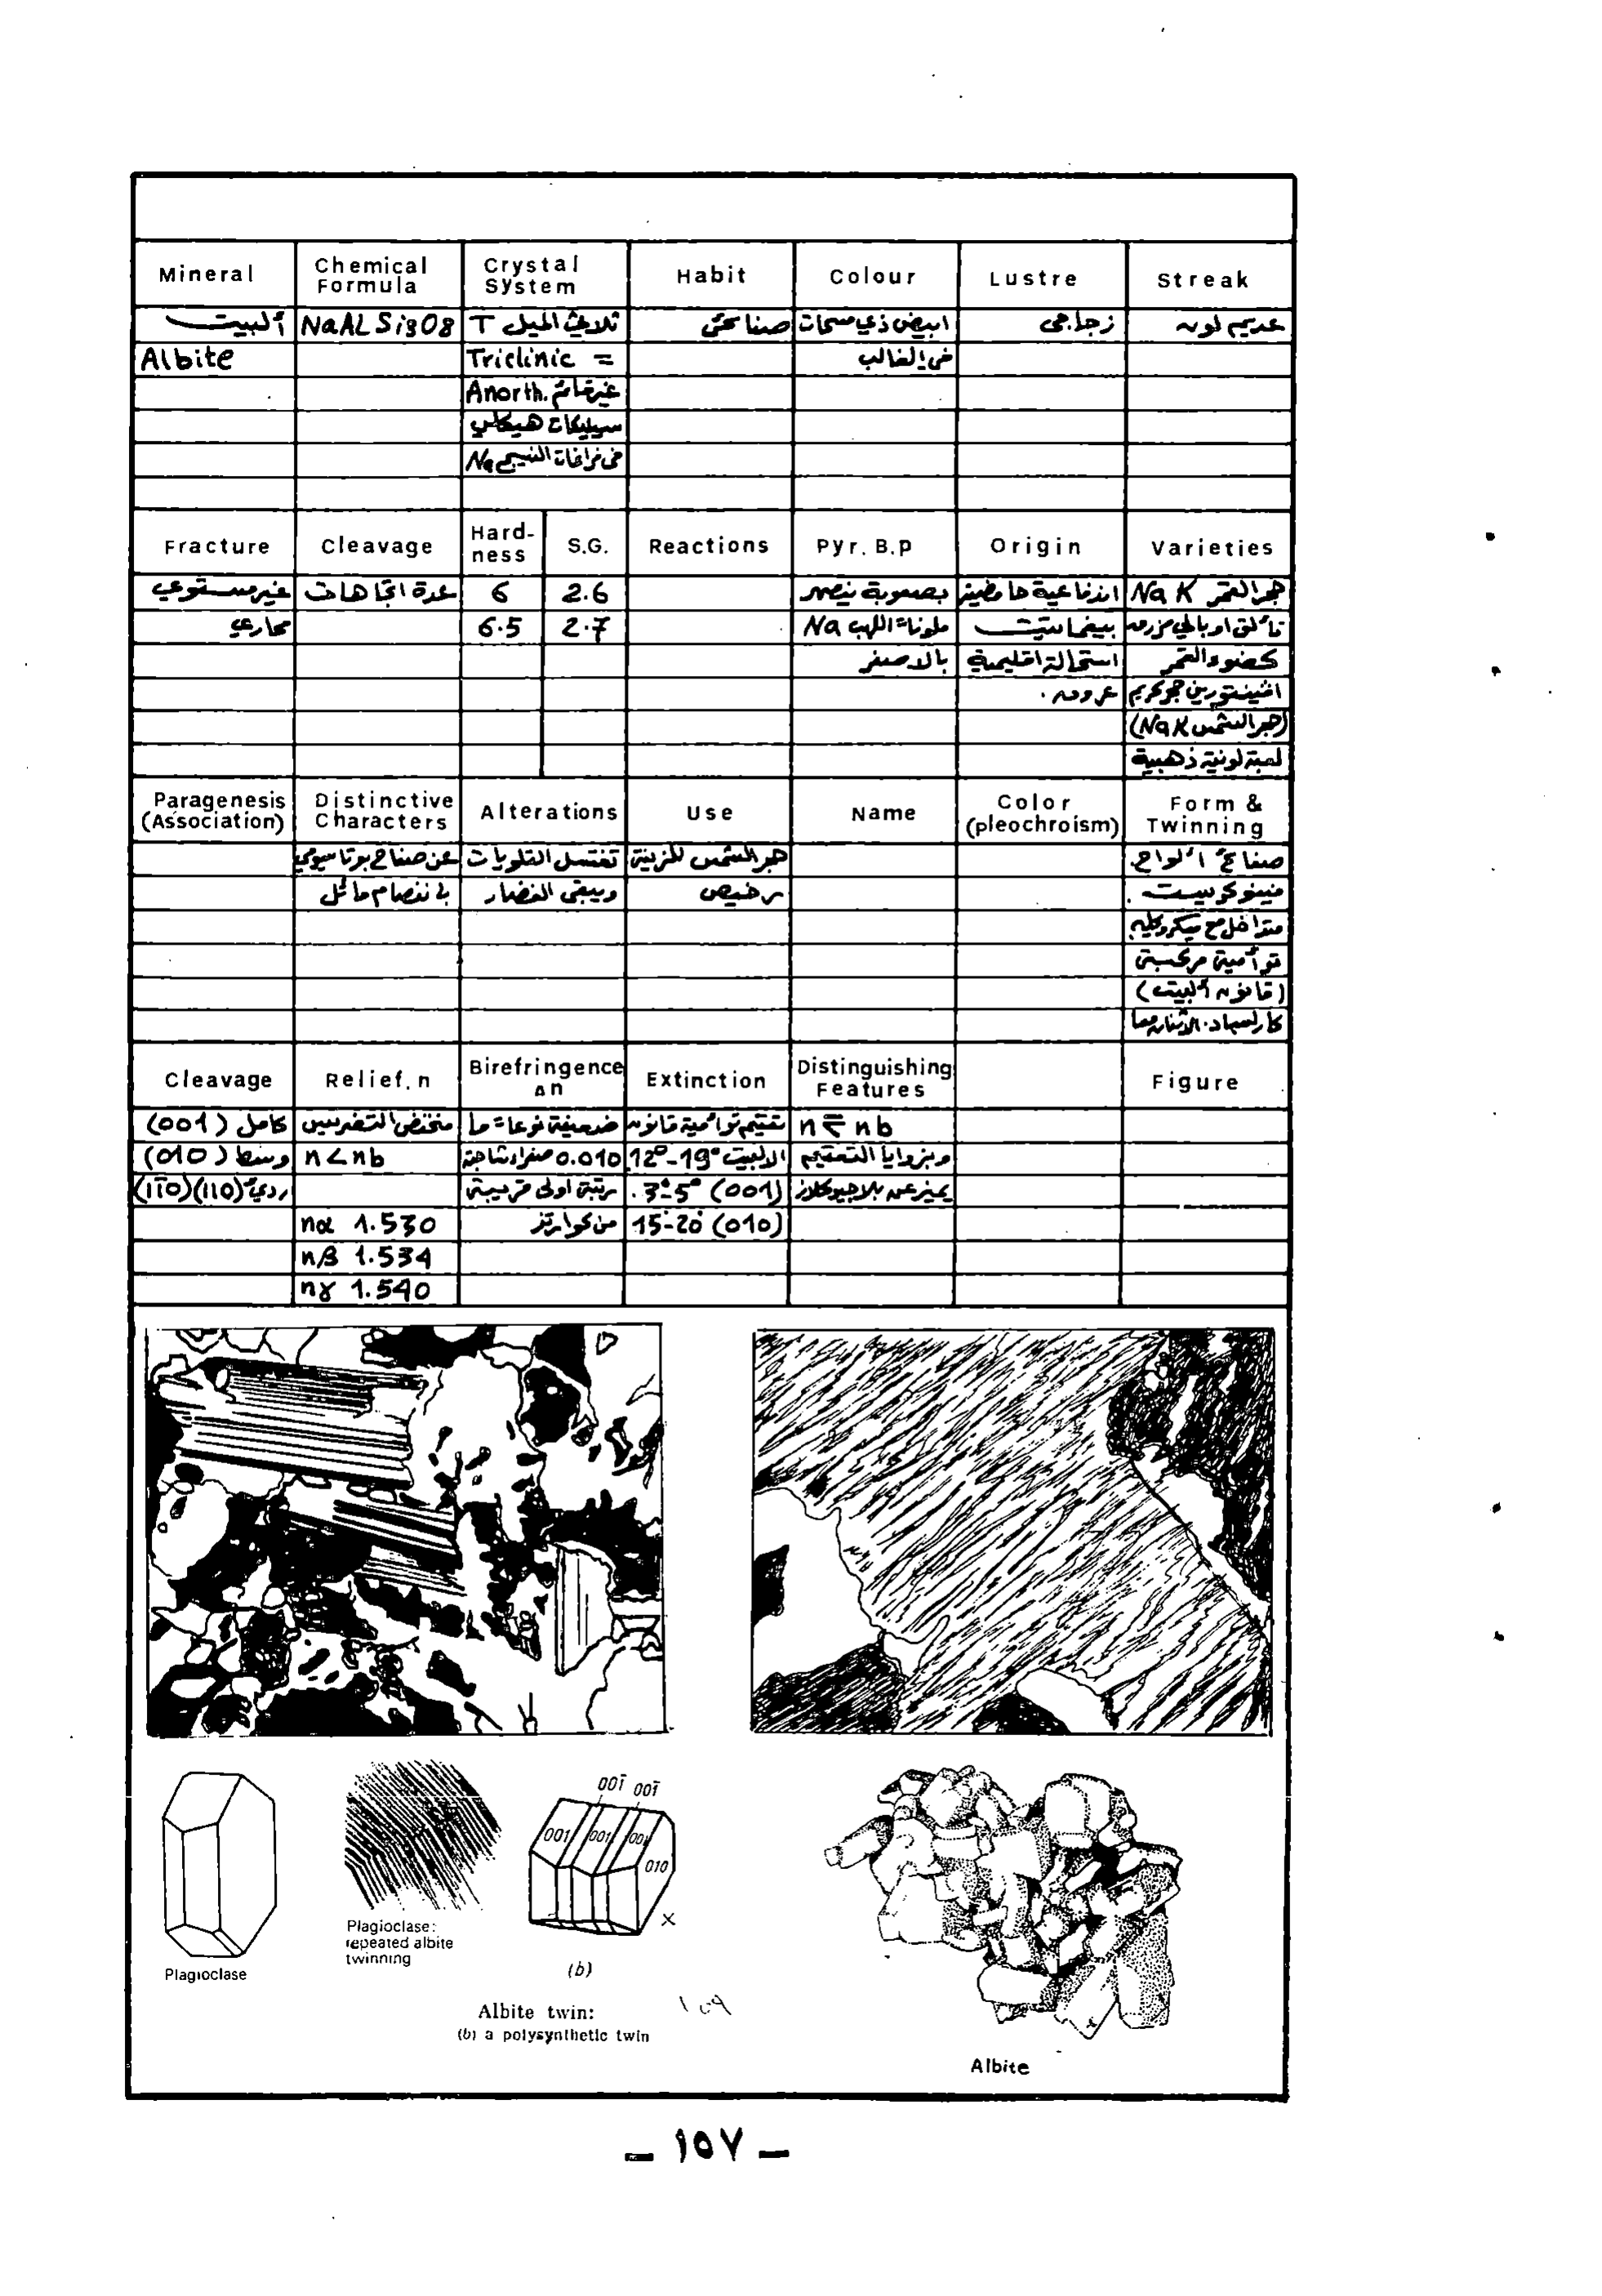 Mineral | Chemical Formula | Crystal System | Habit | Colour | Lustre | Streak
ألبيت | NaALSi3O8 | ثلاثي الميل T | صفائحي | ابيض ذي مسحات | زجاجي | عديم لون
Albite | Triclinic = | في الغالب
Anorth. غير قائم
سيليكات هيكلي
في فراغات النسيج Na
Fracture | Cleavage | Hardness | S.G. | Reactions | Pyr. B.p | Origin | Varieties
غير مستوي | عدة اتجاهات | 6 | 2.6 | بصعوبة ينصهر | اندفاعية حامضية | حجر القمر Na K
محاري | 6.5 | 2.7 | ملوناً اللهب Na | بيغماتيت | تألق اوبالي مزرق
بالاصفر | استحالة اقليمية | كضوء القمر
عروق.
(حجر الشمس Na K)
لعبة لونية ذهبية
Paragenesis (Association) | Distinctive Characters | Alterations | Use | Name | Color (pleochroism) | Form & Twinning
عن صفاح بوتاسيومي | تغتسل القلويات | حجر الشمس للزينة | صفائح ألواح
بانفصام مائل | ويبقى الغضار | رخيص | فينوكريست.
متداخل مع ميكروكلين
توأمية مركبة
(قانون ألبيت)
Cleavage | Relief, n | Birefringence Δn | Extinction | Distinguishing Features | Figure
كامل (001) | منخفض التضريس | ضعيفة نوعاً ما | تعتيم توأمية قانون | n ≂ nb
وسط (010) | n < nb | 0.010 صفراء شاحبة | الالبيت 12°-19° | وبزوايا التعتيم
رديء (110)(1̄10) | رتبة أولى قريبة | 3°-5° (001). | يميز عن بلاجيوكلاز
nα 1.530 | من كوارتز | 15-20° (010)
nβ 1.534
nγ 1.540
001̄ 001̄
001 001 001
010
x
Plagioclase
Plagioclase:
repeated albite
twinning
(b)
Albite twin:
(b) a polysynthetic twin
١٥٩
Albite
– ١٥٧ –